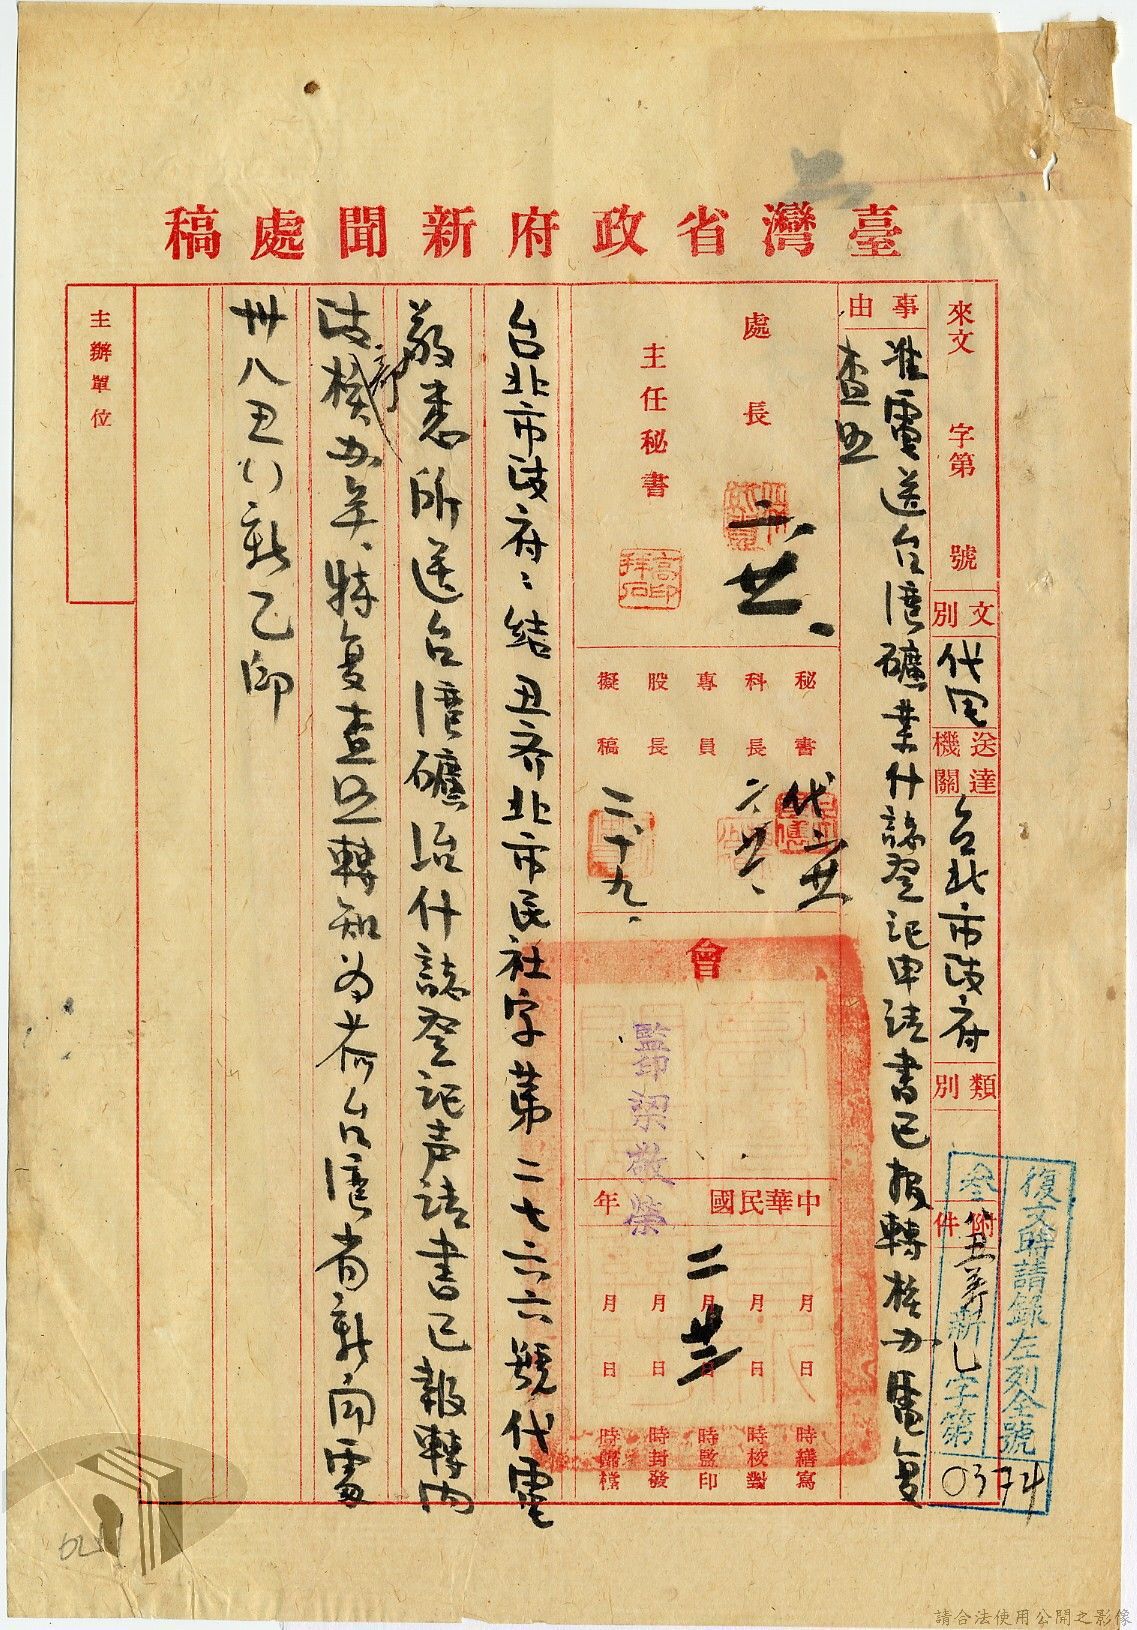 臺灣省政府新聞處稿
來文 字第 號
文別 代电
送達機關 台北市政府
類別
附件
復文時請錄左列全號
參捌丑 新乙字第
0374
事由
准電送台湾礦業什誌登记申請書已报轉核办電复
查照
處長 二、廿、
主任秘書
秘書 代二廿
科長 二、廿、
專員
股長
擬稿 二、十九、
會
監印梁敬榮
中華民國 年
二 廿三
月日時繕寫
月日時校對
月日時監印
月日時封發
月日時歸檔
台北市政府：結丑齐北市民社字第二七六六號代電
敬悉所送台湾礦冶什誌登记声請書已報轉内
政部核办矣、特复查照轉知为荷台湾省新闻處
卅八丑 新乙印
主辦單位
請合法使用公開之影像